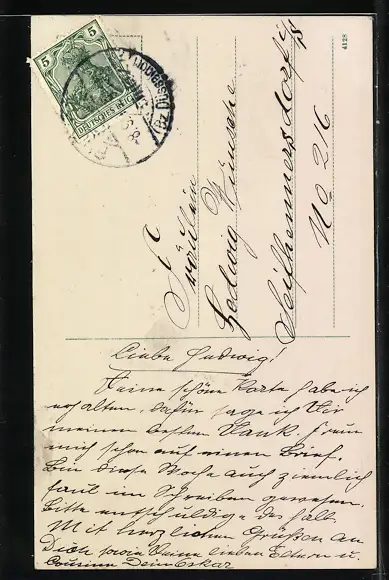 5 5
DEUTSCHES REICH
4128
Fräulein
Hedwig Wünsche
Seifhennersdorf i/S
No 216
Liebe Hedwig!
Deine schöne Karte habe ich
erhalten, dafür sage ich Dir
meinen besten Dank. Freu
mich schon auf einen Brief.
Bin diese Woche auch ziemlich
faul im Schreiben gewesen.
Bitte entschuldige deshalb.
Mit herzlichen Grüßen an
Dich sowie Deine lieben Eltern u.
Cousine Dein Oskar